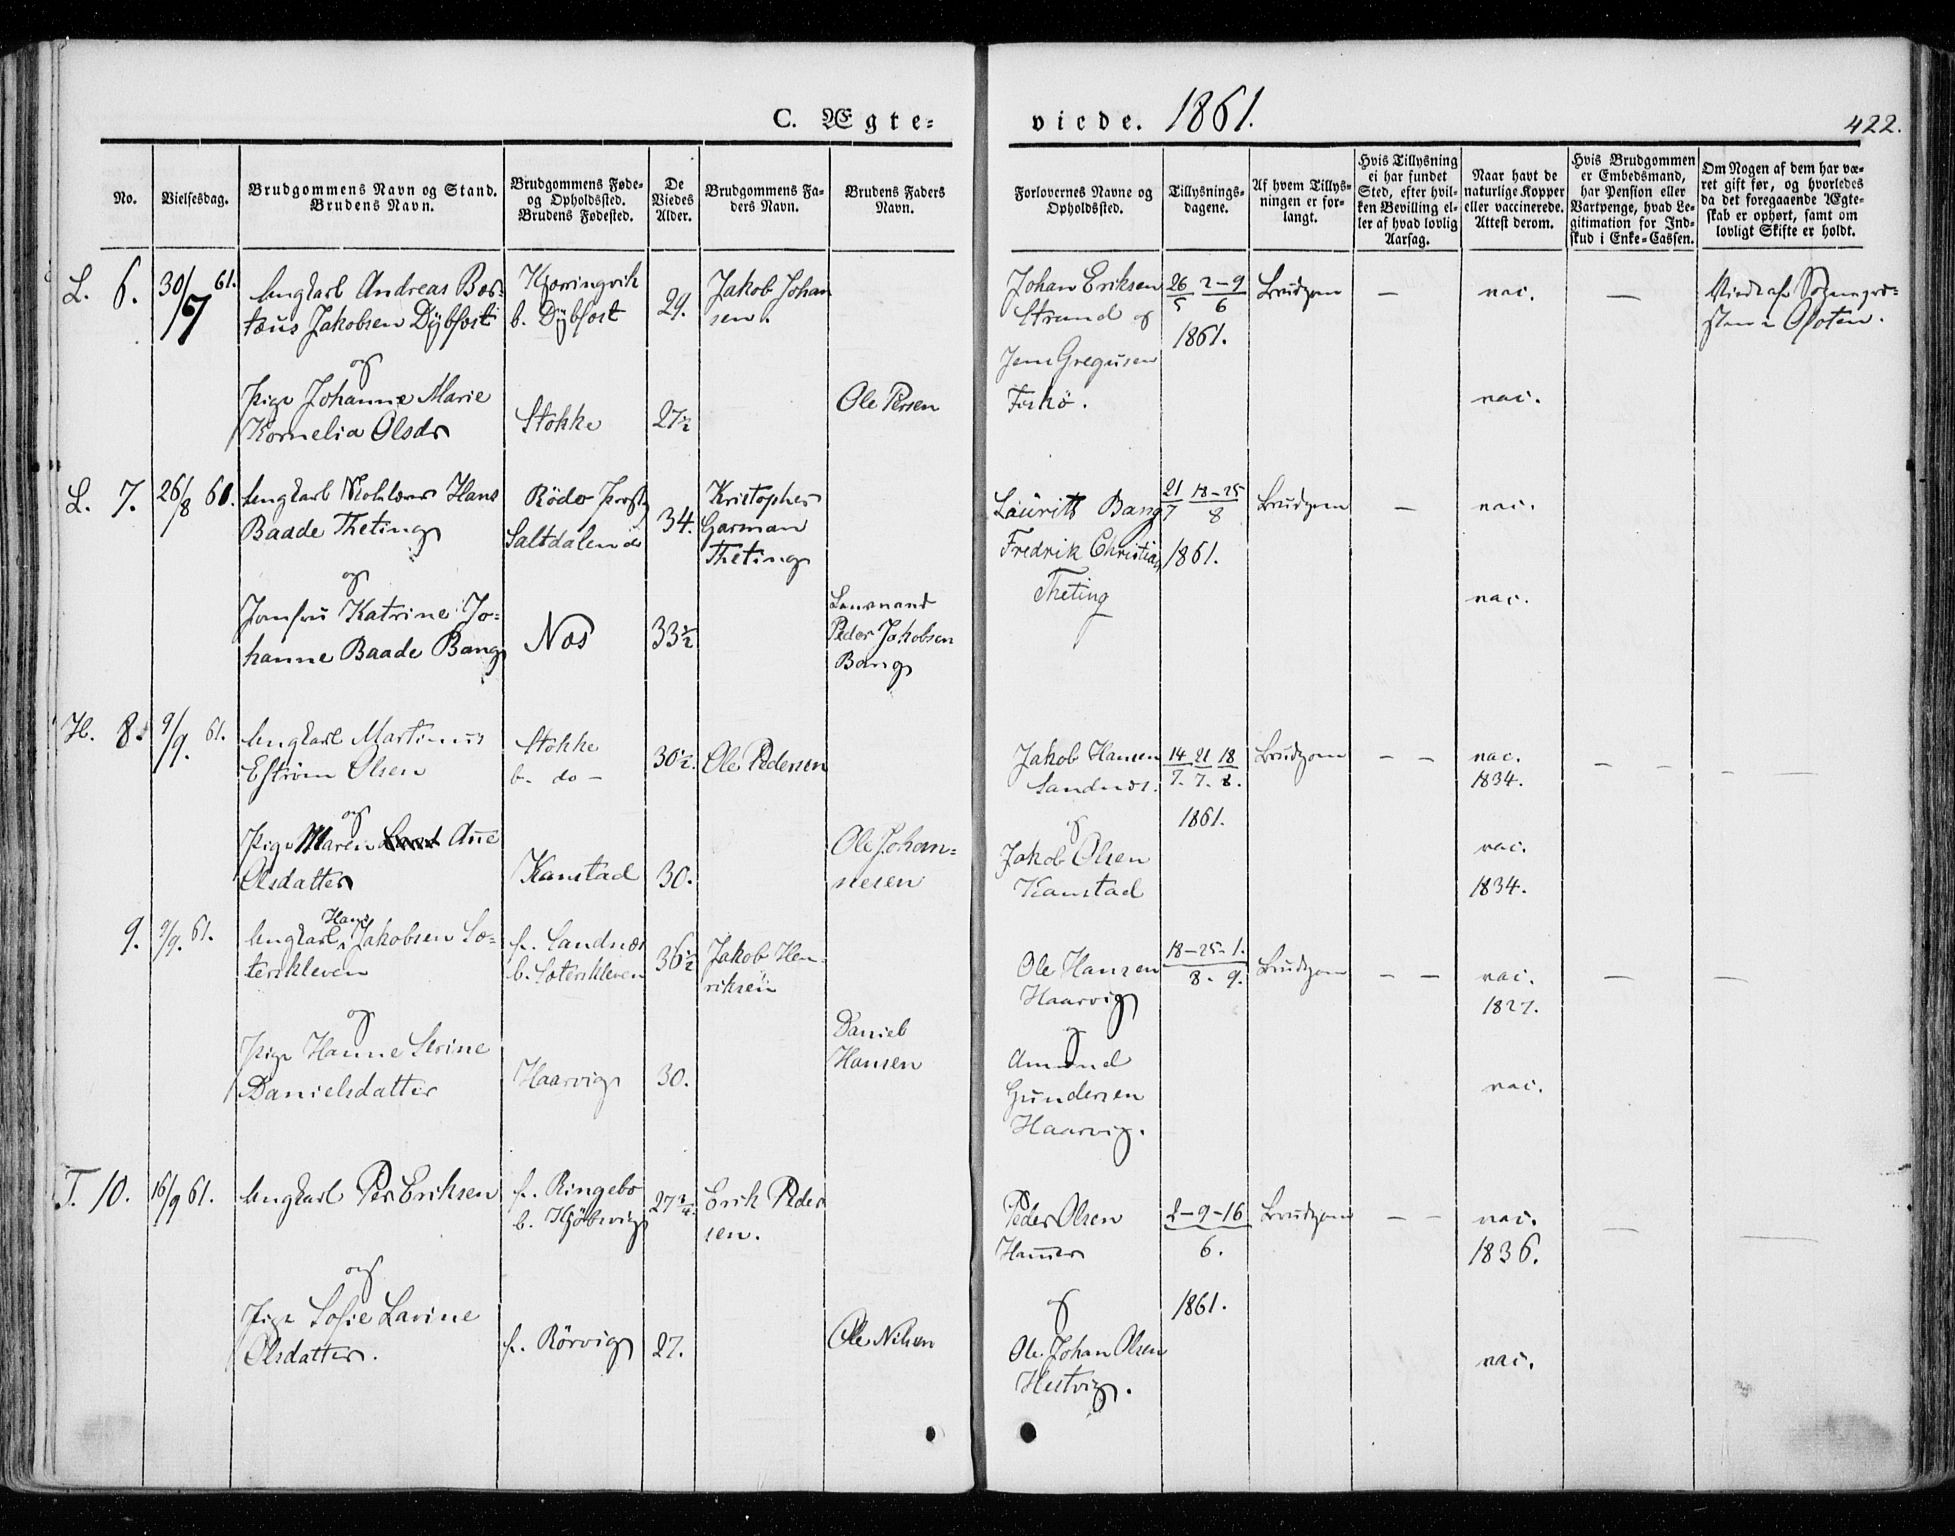 C. Ægte=
viede. 1861.
422.
No.
Vielsesdag.
Brudgommens Navn og Stand.
Brudens Navn.
Brudgommens Føde-
og Opholdssted.
Brudens Fødested.
De
Viedes
Alder.
Brudgommens Fa-
ders Navn.
Brudens Faders
Navn.
Forlovernes Navne og
Opholdssted.
Tillysnings-
dagene.
Af hvem Tillys-
ningen er for-
langt.
Hvis Tillysning
ei har fundet
Sted, efter hvil-
ken Bevilling el-
ler af hvad lovlig
Aarsag.
Naar havt de
naturlige Kopper
eller vaccinerede.
Attest derom.
Hvis Brudgommen
er Embedsmand,
har Pension eller
Vartpenge, hvad Le-
gitimation for Ind-
skud i Enke-Cassen.
Om Nogen af dem har væ-
ret gift før, og hvorledes
da det foregaaende Ægte-
skab er ophørt, samt om
lovligt Skifte er holdt.
L. 6.
30/7 61.
Ungkarl Andreas Bær-
tæus Jakobsen Dybfæst
og
Pige Johanne Marie
Kornelia Olsdr
Kjærringvik
b. Dybfæst
Stokke
29.
27½
Jakob Johan
sen.
Ole Persen
Johan Eriksen
Strand og
Jens Gregusen
Fiskö.
26/5 2-9/6
1861.
Brudgom
—
vac.
vac.
—
i Ofoten.
L. 7.
26/8 61.
Ungkarl Nikolæus Hans
Baade Theting
og
Jomfru Katrine Jo-
hanne Baade Bang
Rödö Prgj
Saltdalen do
Næs
34.
33½
Kristopher
Garman
Theting
Lensmand
Peder Jakobsen
Bang
Laurits Bang
Fredrik Christian
Theting
21/7 18-25/8
1861.
Brudgom
—
vac.
vac.
H. 8.
9/9. 61.
Ungkarl Martinus
Eström Olsen
og
Pige Maren Ane
Olsdatter
Stokke
b. do –
Kanstad
30½.
30.
Ole Pedersen
Ole Johan-
nesen
Jakob Hansen
Sandnæs.
og
Jakob Olsen
Kanstad
14/7. 21/7. 18/8.
1861.
Brudgom
— —
vac.
1834.
vac.
1834.
— — — —
9.
9/9. 61.
Ungkarl Hans Jakobsen Sæ-
terikleven
og
Pige Hanne Serine
Danielsdatter
f. Sandnæs
b. Sæterikleven
Haarvig
36½
30.
Jakob Hen-
riksen
Daniel
Hansen
Ole Hansen
Haarvig
og
Amund
Gundersen
Haarvig.
18-25-1./8-9.
Brudgom
— —
vac.
1827.
vac.
— —
T. 10.
16/9 61.
Ungkarl Per Eriksen
og
Pige Sofie Lavine
Olsdatter.
f. Ringebo
b. Kjöbsvig
f. Rörvig
27¾
27.
Erik Peder
sen.
Ole Nilsen
Peder Olsen
Hamer
og
Ole Johan Olsen
Hestvig.
2-9-16/6.
1861.
Brudgom
— —
vac.
1836.
vac.
— —